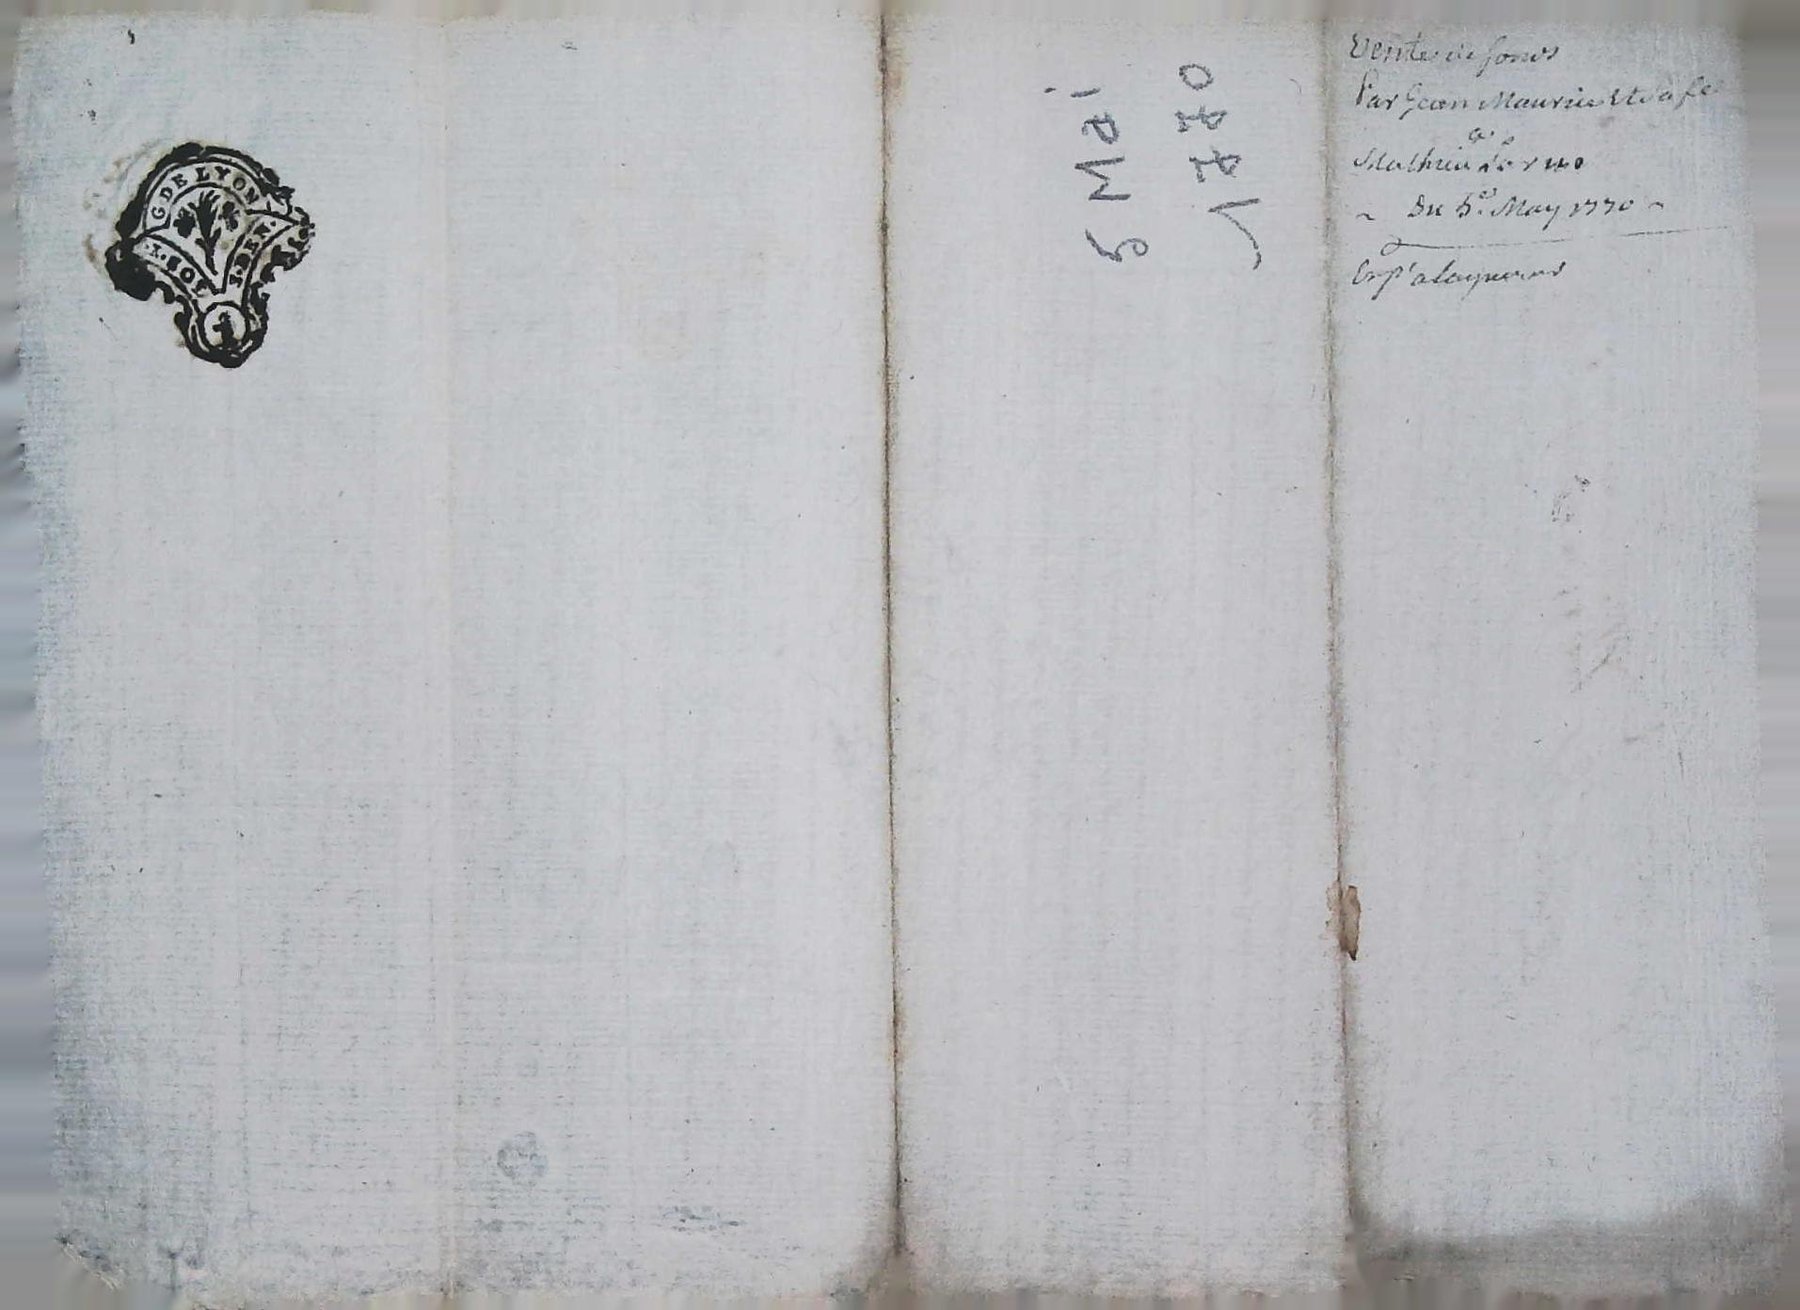 G DE LYON
X. SOL
S. DEN.
5 Mai
1770
Vente de fonds
Par Jean Maurice Et sa fe
a
Mathieu
Du 5e. May 1770